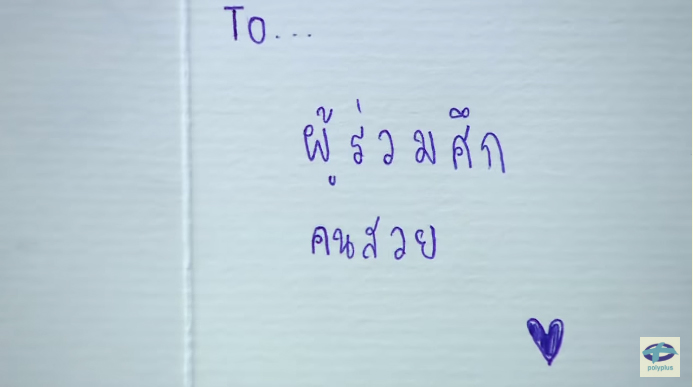 To...
ผู้ร่วมศึก
คนสวย
polyplus